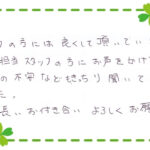 の方には良くして頂いてい
担当スタッフの方にお声をかけ
の不安などもきっちり聞いて
た。
長いお付き合い よろしくお願